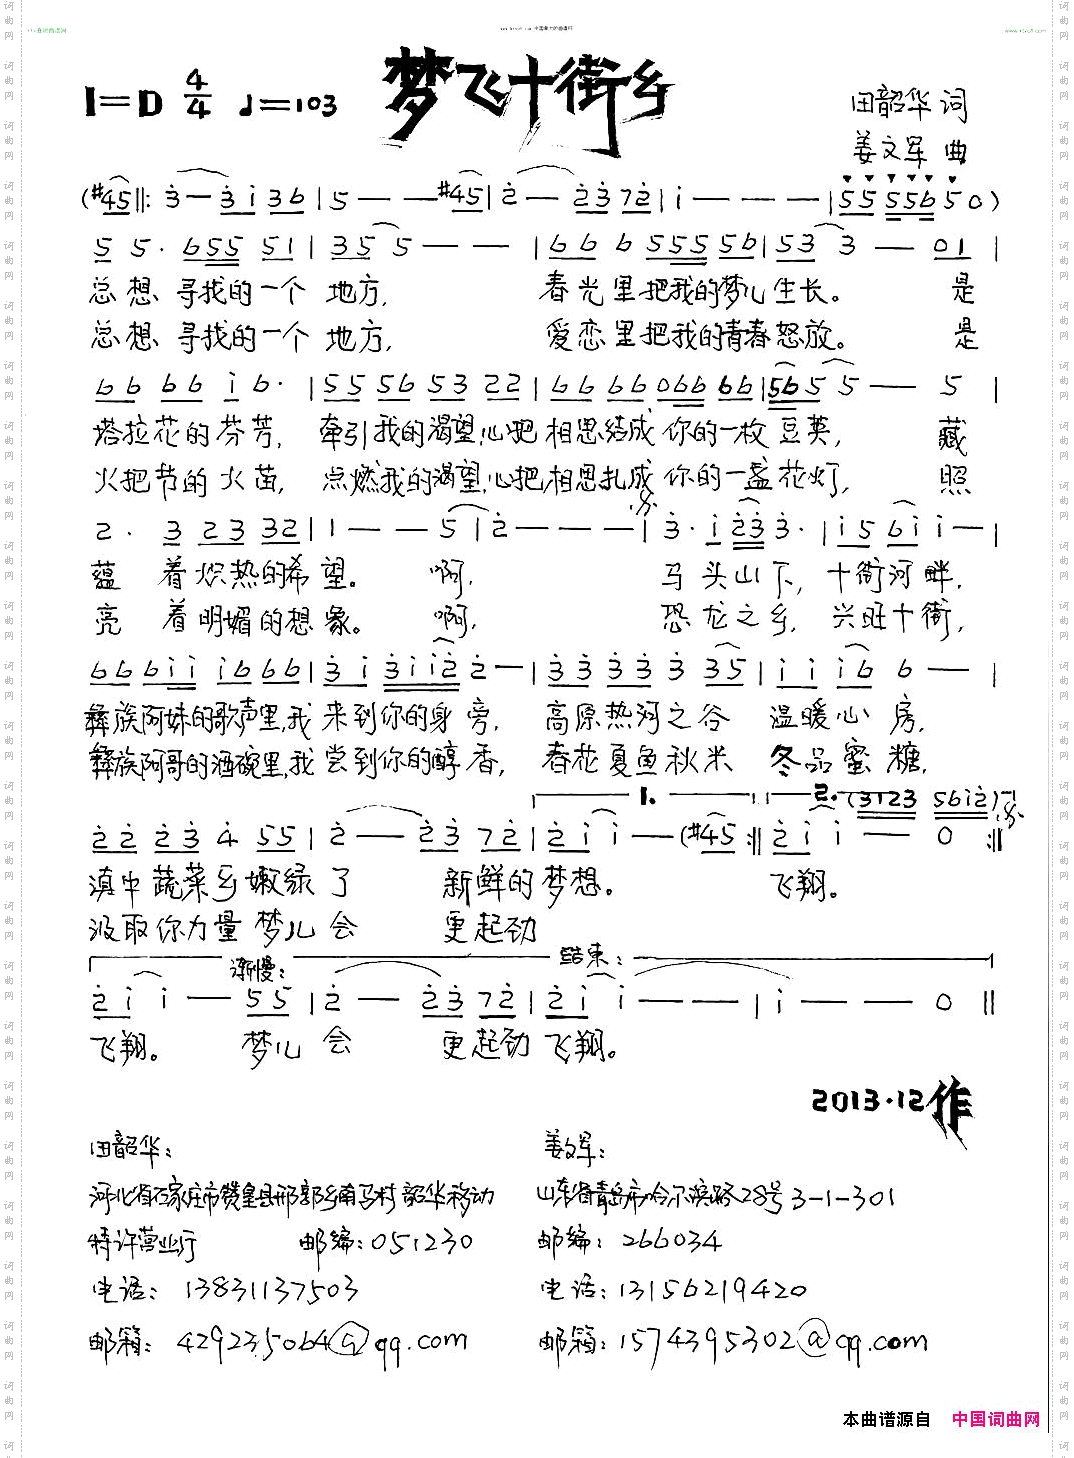 梦飞十街乡
1=D 4/4 ♩=103
田韶华 词
姜文军 曲
(#45 ‖: 3 — 3 i 3 6 | 5 — — #45 | 2 — 2 3 7 2 | i — — — | 5 5 5 5 6 5 0 )
5 5 · 6 5 5 5 1 | 3 5 5 — — | 6 6 6 5 5 5 5 6 | 5 3 3 — 0 1 |
总想 寻找的一个 地方, 春光里把我的梦儿生长。 是
总想 寻找的一个 地方, 爱恋里把我的青春怒放。 是
6 6 6 6 i 6 · | 5 5 5 6 5 3 2 2 | 6 6 6 6 0 6 6 6 6 | 5 6 5 5 — 5 |
塔拉花的芬芳, 牵引我的渴望,心把相思结成你的一枚豆荚, 藏
火把节的火苗, 点燃我的渴望,心把相思扎成你的一盏花灯, 照
2 · 3 2 3 3 2 | 1 — — 5 | 2 — — — | 3 · i 2 3 3 · | i 5 6 i i — |
蕴 着炽热的希望。 啊, 马头山下, 十街河畔,
亮 着明媚的想象。 啊, 恐龙之乡, 兴旺十街,
6 6 6 i i i 6 6 6 | 3 i 3 i i 2 2 — | 3 3 3 3 3 3 5 | i i i 6 6 — |
彝族阿妹的歌声里,我来到你的身旁, 高原热河之谷 温暖心房,
彝族阿哥的酒碗里,我尝到你的醇香, 春花夏鱼秋米 冬品蜜糖,
1. 2. (3 1 2 3 5 6 i 2)
2 2 2 3 4 5 5 | 2 — 2 3 7 2 | 2 i i — (#45 :‖ 2 i i — 0 :‖
滇中蔬菜乡嫩绿了 新鲜的梦想。 飞翔。
汲取你力量梦儿会 更起劲
渐慢: 结束:
2 i i — 5 5 | 2 — 2 3 7 2 | 2 i i — — | i — — 0 ‖
飞翔。 梦儿会 更起劲飞翔。
2013·12作
田韶华:
河北省石家庄市赞皇县邢郭乡南马村韶华移动
特许营业厅 邮编:051230
电话: 13831137503
邮箱: 429235064@qq.com
姜文军:
山东省青岛市哈尔滨路28号3-1-301
邮编: 266034
电话: 13156219420
邮箱: 1574395302@qq.com
本曲谱源自 中国词曲网